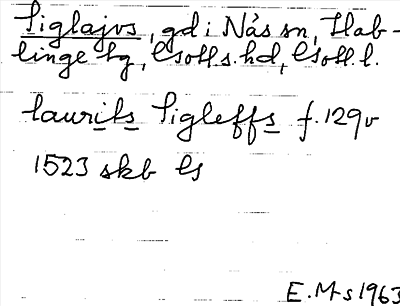 Siglajvs, gd i Näs sn, Hab-
linge tg, Gotl.s.hd, Gotl.l.
laurits Sigleffs f. 129v
1523 skb G
E.M-s 1963